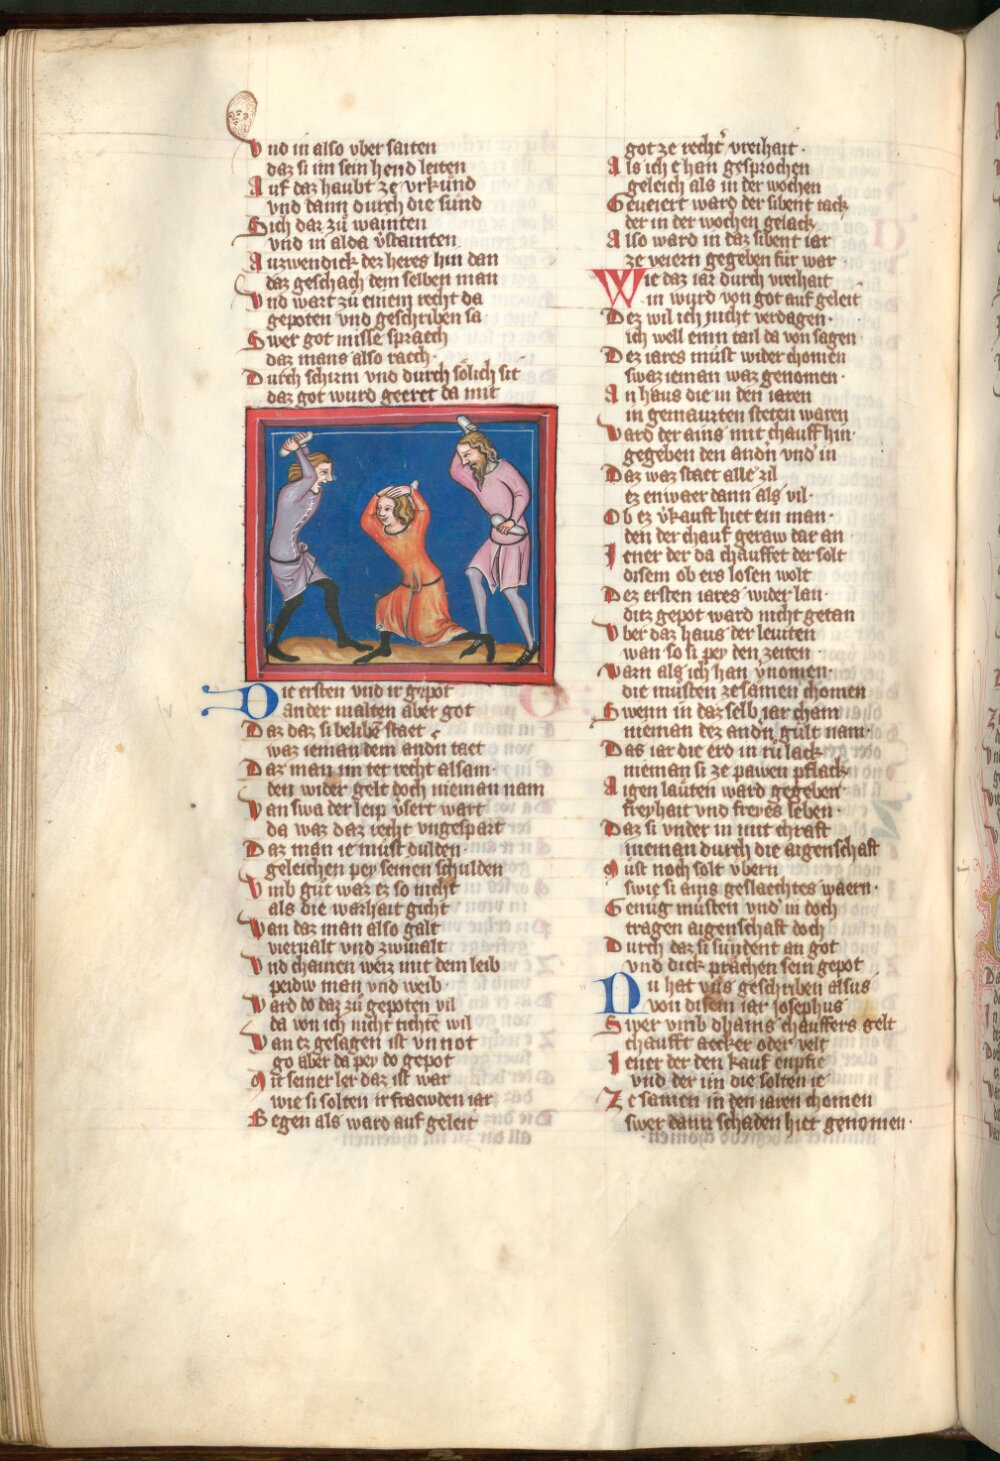 Vnd in also vber saiten
daz si im sein hend leiten
Auf daz haubt ze vrkund
vnd dann durch die sund
Sich dar zů wainten
vnd in alda v̓stainten
Auzwendick dez heres hin dan
daz geschach dem selben man
Vnd wart zů einem recht da
gepoten vnd geschriben sa
Swer got misse spraech
daz mans also raech·
Durch schirm vnd durch sölich sit
daz got wurd geeret da mit
Die ersten vnd ir gepot
ander malten aber got
Daz daz si belibē staet
waz ieman dem andn̄ taet
Daz man im tet recht alsam·
den wider gelt doch nieman nam
Wan swa der leip v̓sert wart
da waz daz recht vngespart
Daz man ie must dulden·
geleichen pey seinen schulden
Vmb gůt waz ez so nicht
als die warhait gicht
Wan daz man also galt
viervalt vnd zwiualt
Vnd chainen weiz mit dem leib
peidw man vnd weib·
Ward do daz zů gepoten vil
da von ich nicht tichtē wil
Wan ez gesagen ist vn not
go aber da pey do gepot
Mit seiner ler daz ist war
wie si solten ir fraewden iar
Begen als ward auf geleit
got ze recht̓ vreihait·
Als ich e han gesprochen
geleich als in der wochen
Geveiert ward der sibent tack
der in der wochen gelack
Also ward in daz sibent iar
ze veiern gegeben für war
Wie daz iar durch vreihait
in wurd von got auf geleit
Dez wil ich nicht verdagen·
ich well euin tail da von sagen
Dez iares müst wider chomen
swaz ieman waz genomen·
An haus die in den iaren
in gemaurten steten waren
Ward der ains mit chauff hin·
gegeben den andn̄ vnd̓ in
Daz waz staet alle zil
ez enwaer dann als vil·
Ob ez v̓kauft hiet ein man·
den der chauf geraw dar an
Iener der da chauffet der solt
disem ob ers losen wolt
Dez ersten iares wider lan·
ditz gepot ward nicht getan
Vber daz haus der leuiten
wan so si pey den zeiten
Warn als ich han v̓nomen·
die müsten zesamen chomen
Swenn in daz selb iar cham
nieman dez andn̄ gült nam·
Das iar die erd in rů lack
nieman si ze pawen pflack
Aigen lauten ward gegeben
freyhait vnd freyes leben·
Daz si vnder in mit chraft
nieman durch die aigenschaft
Müst noch solt vbern
swie si ains geslaechtes waern·
Genüg müsten vnd̓ in doch
tragen aigenschaft doch
Durch daz si sundent an got
vnd dick prachen sein gepot
Nu hat vns geschriben alsus
von disem iar iosephus
Swer vmb dhains chauffers gelt
chaufft aecker oder velt
Iener der den kauf enpfie
vnd der im die solten ie
Ze samen in den iaren chomen
swer dann schaden hiet genomen·